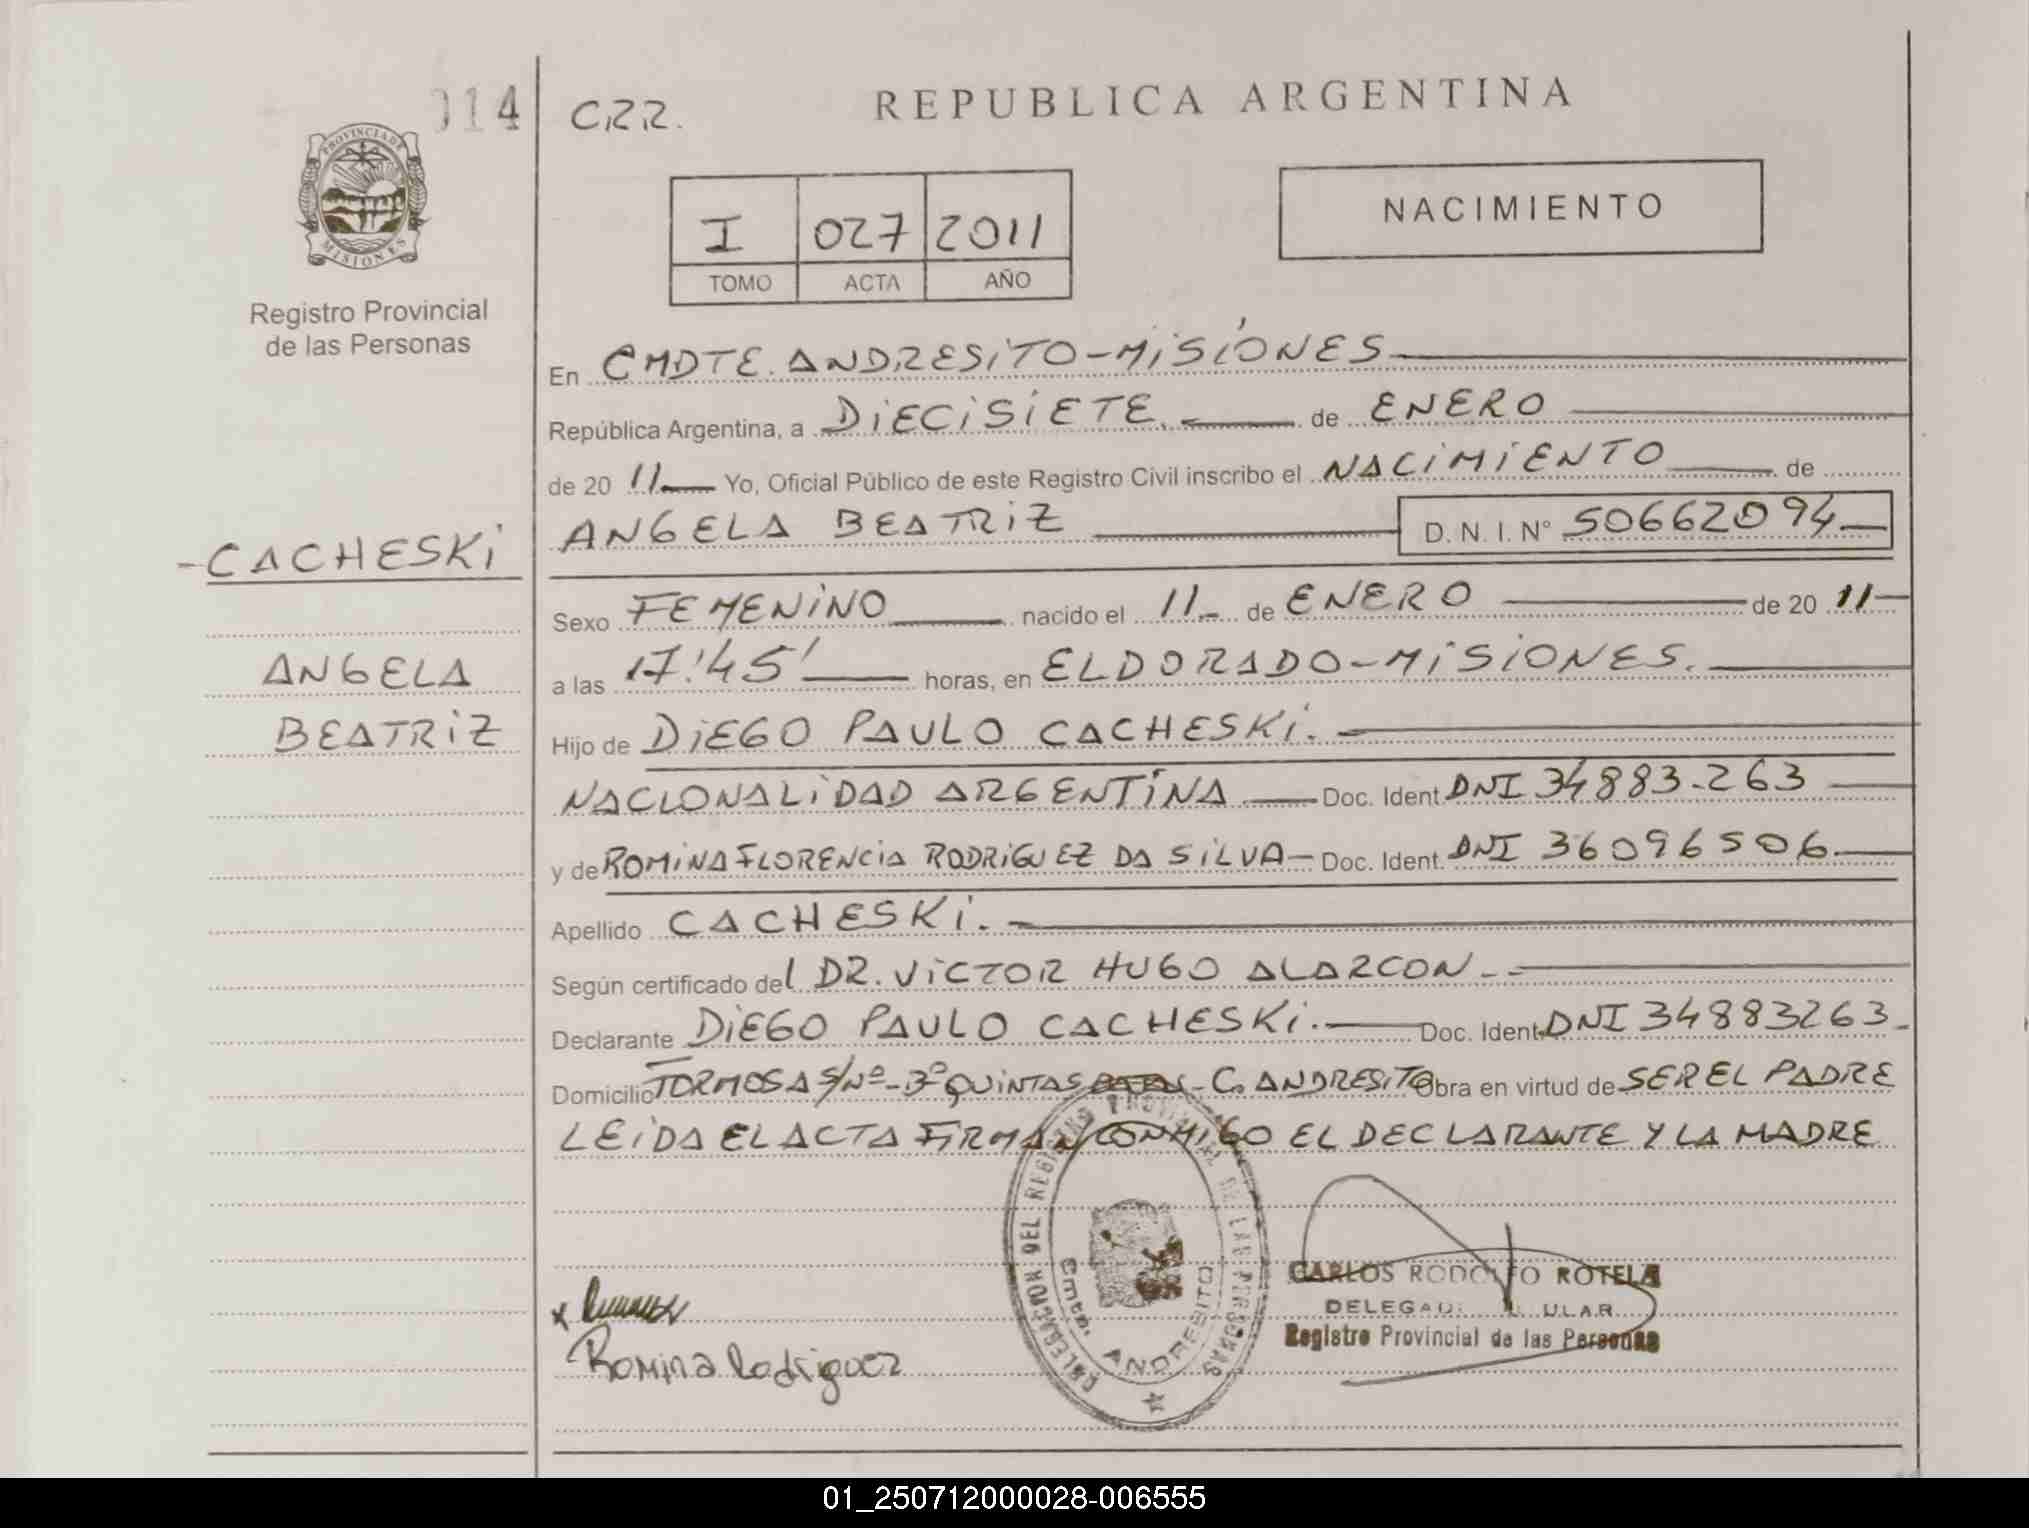 014
CRR.
REPUBLICA ARGENTINA
PROVINCIA DE
MISIONES
Registro Provincial
de las Personas
I 027 2011
TOMO ACTA AÑO
NACIMIENTO
En CMDTE. ANDRESITO-MISIONES
República Argentina, a DIECISIETE. de ENERO
de 20 11 Yo, Oficial Público de este Registro Civil inscribo el NACIMIENTO de
ANGELA BEATRIZ D. N. I. N° 50662094
-CACHESKI
ANGELA
BEATRIZ
Sexo FEMENINO nacido el 11 de ENERO de 20 11
a las 17:45' horas, en ELDORADO-MISIONES.
Hijo de DIEGO PAULO CACHESKI.
NACIONALIDAD ARGENTINA Doc. Ident DNI 34883.263
y de ROMINA FLORENCIA RODRIGUEZ DA SILVA Doc. Ident. DNI 36096506
Apellido CACHESKI.
Según certificado del DR. VICTOR HUGO ALARCON
Declarante DIEGO PAULO CACHESKI. Doc. Ident DNI 34883263
Domicilio FORMOSA S/Nº-Bº QUINTAS - C. ANDRESITO Obra en virtud de SER EL PADRE
LEIDA EL ACTA FIRMAN CONMIGO EL DECLARANTE Y LA MADRE
DELEGACION DEL REGISTRO PROVINCIAL DE LAS PERSONAS
Cmte. ANDRESITO
CARLOS RODOLFO ROTELA
Registro Provincial de las Personas
Romina Rodriguez
01_250712000028-006555